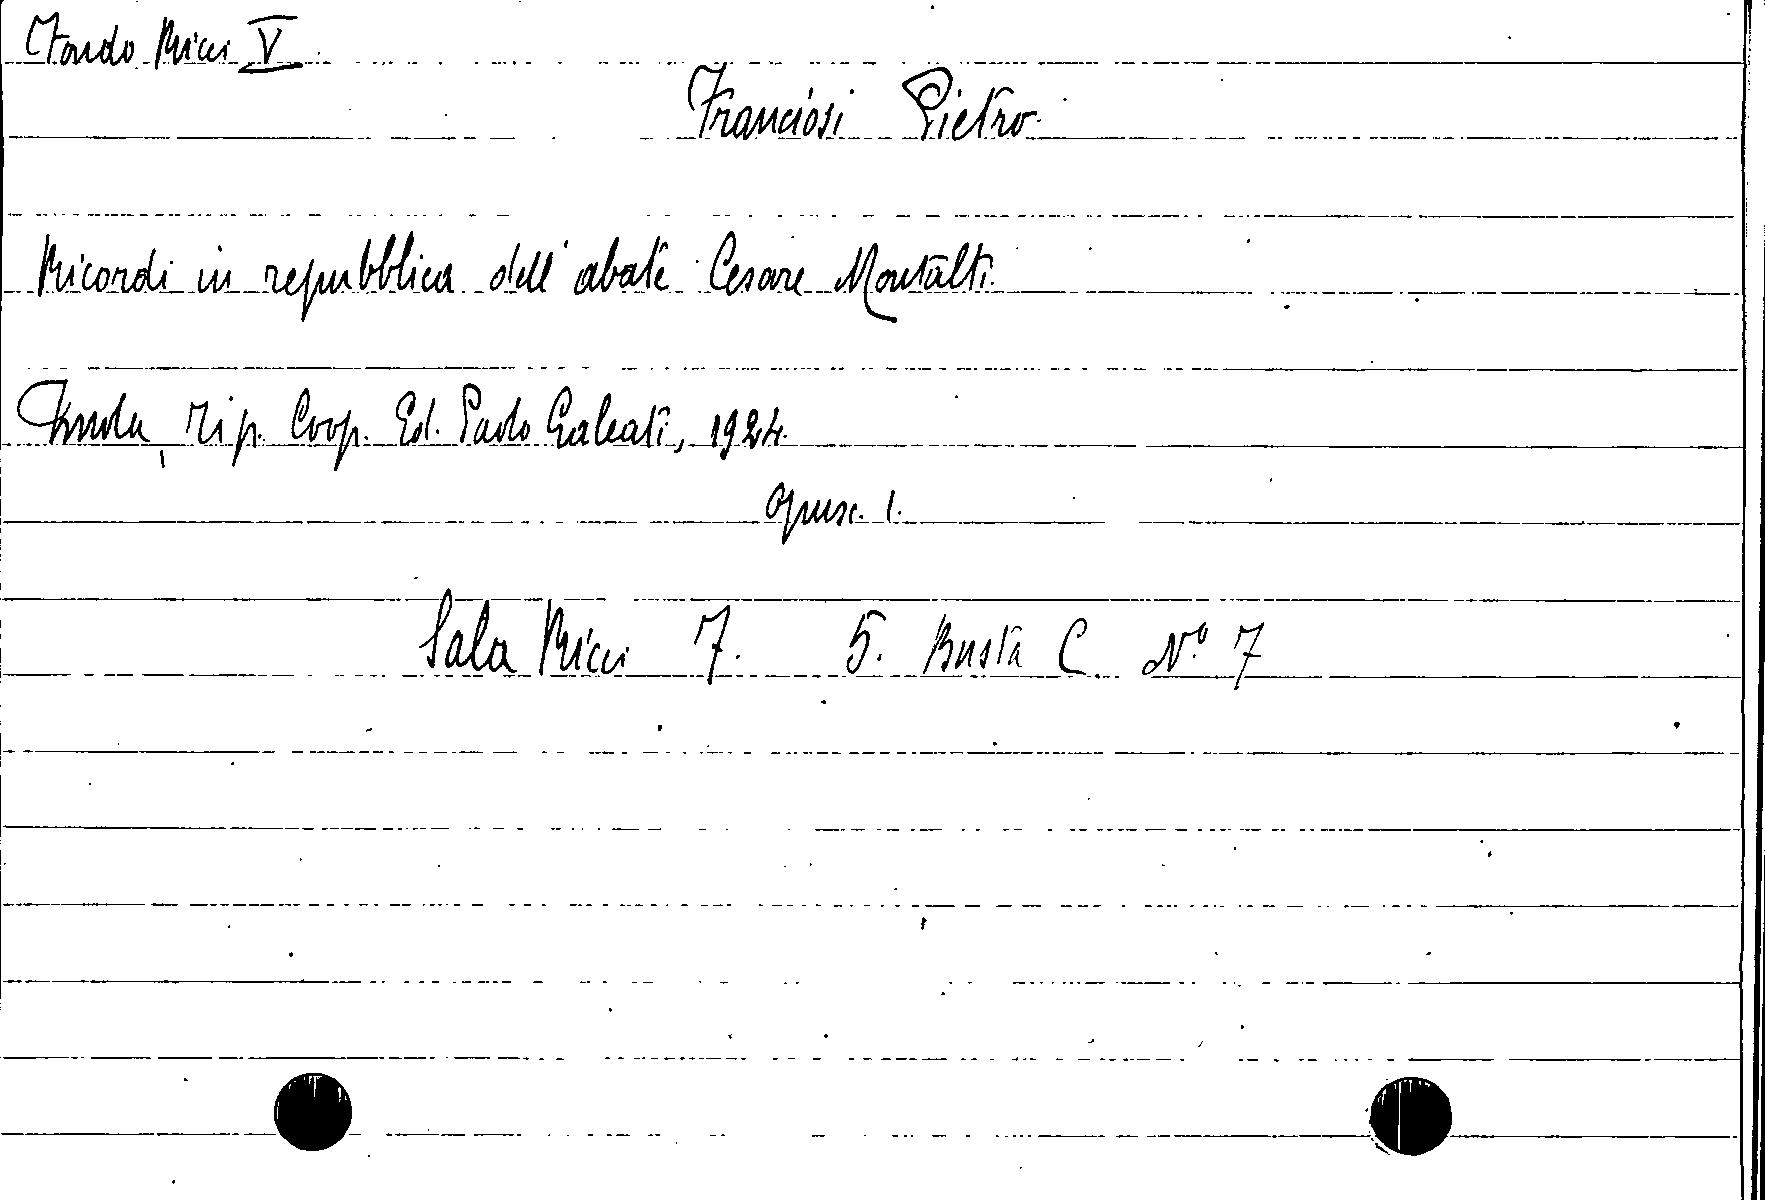 Fondo Ricci V
Franciosi Pietro.
Ricordi in repubblica dell'abate Cesare Montalti.
Imola, Tip. Coop. Ed. Paolo Galeati, 1924.
opusc. 1.
Sala Ricci 7. 5. Busta C. N.º 7